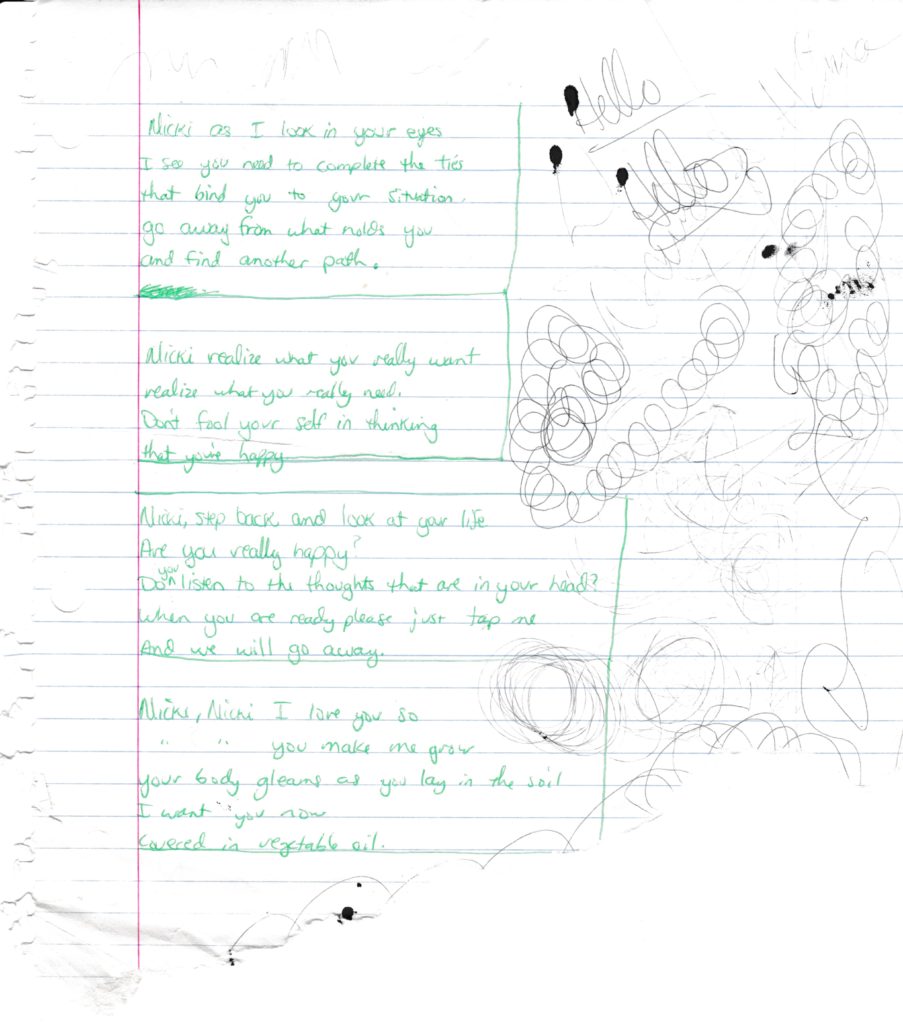 Hello
Hello
Nicki as I look in your eyes
I see you need to complete the ties
that bind you to your situation.
go away from what holds you
and find another path.
Nicki realize what you really want
realize what you really need.
Don't fool your self in thinking
that you're happy
Nicki, step back and look at your life
Are you really happy?
Do you listen to the thoughts that are in your head?
When you are ready please just tap me
And we will go away.
Nicki, Nicki I love you so
" " you make me grow
your body gleams as you lay in the soil
I want you now
Covered in vegetable oil.